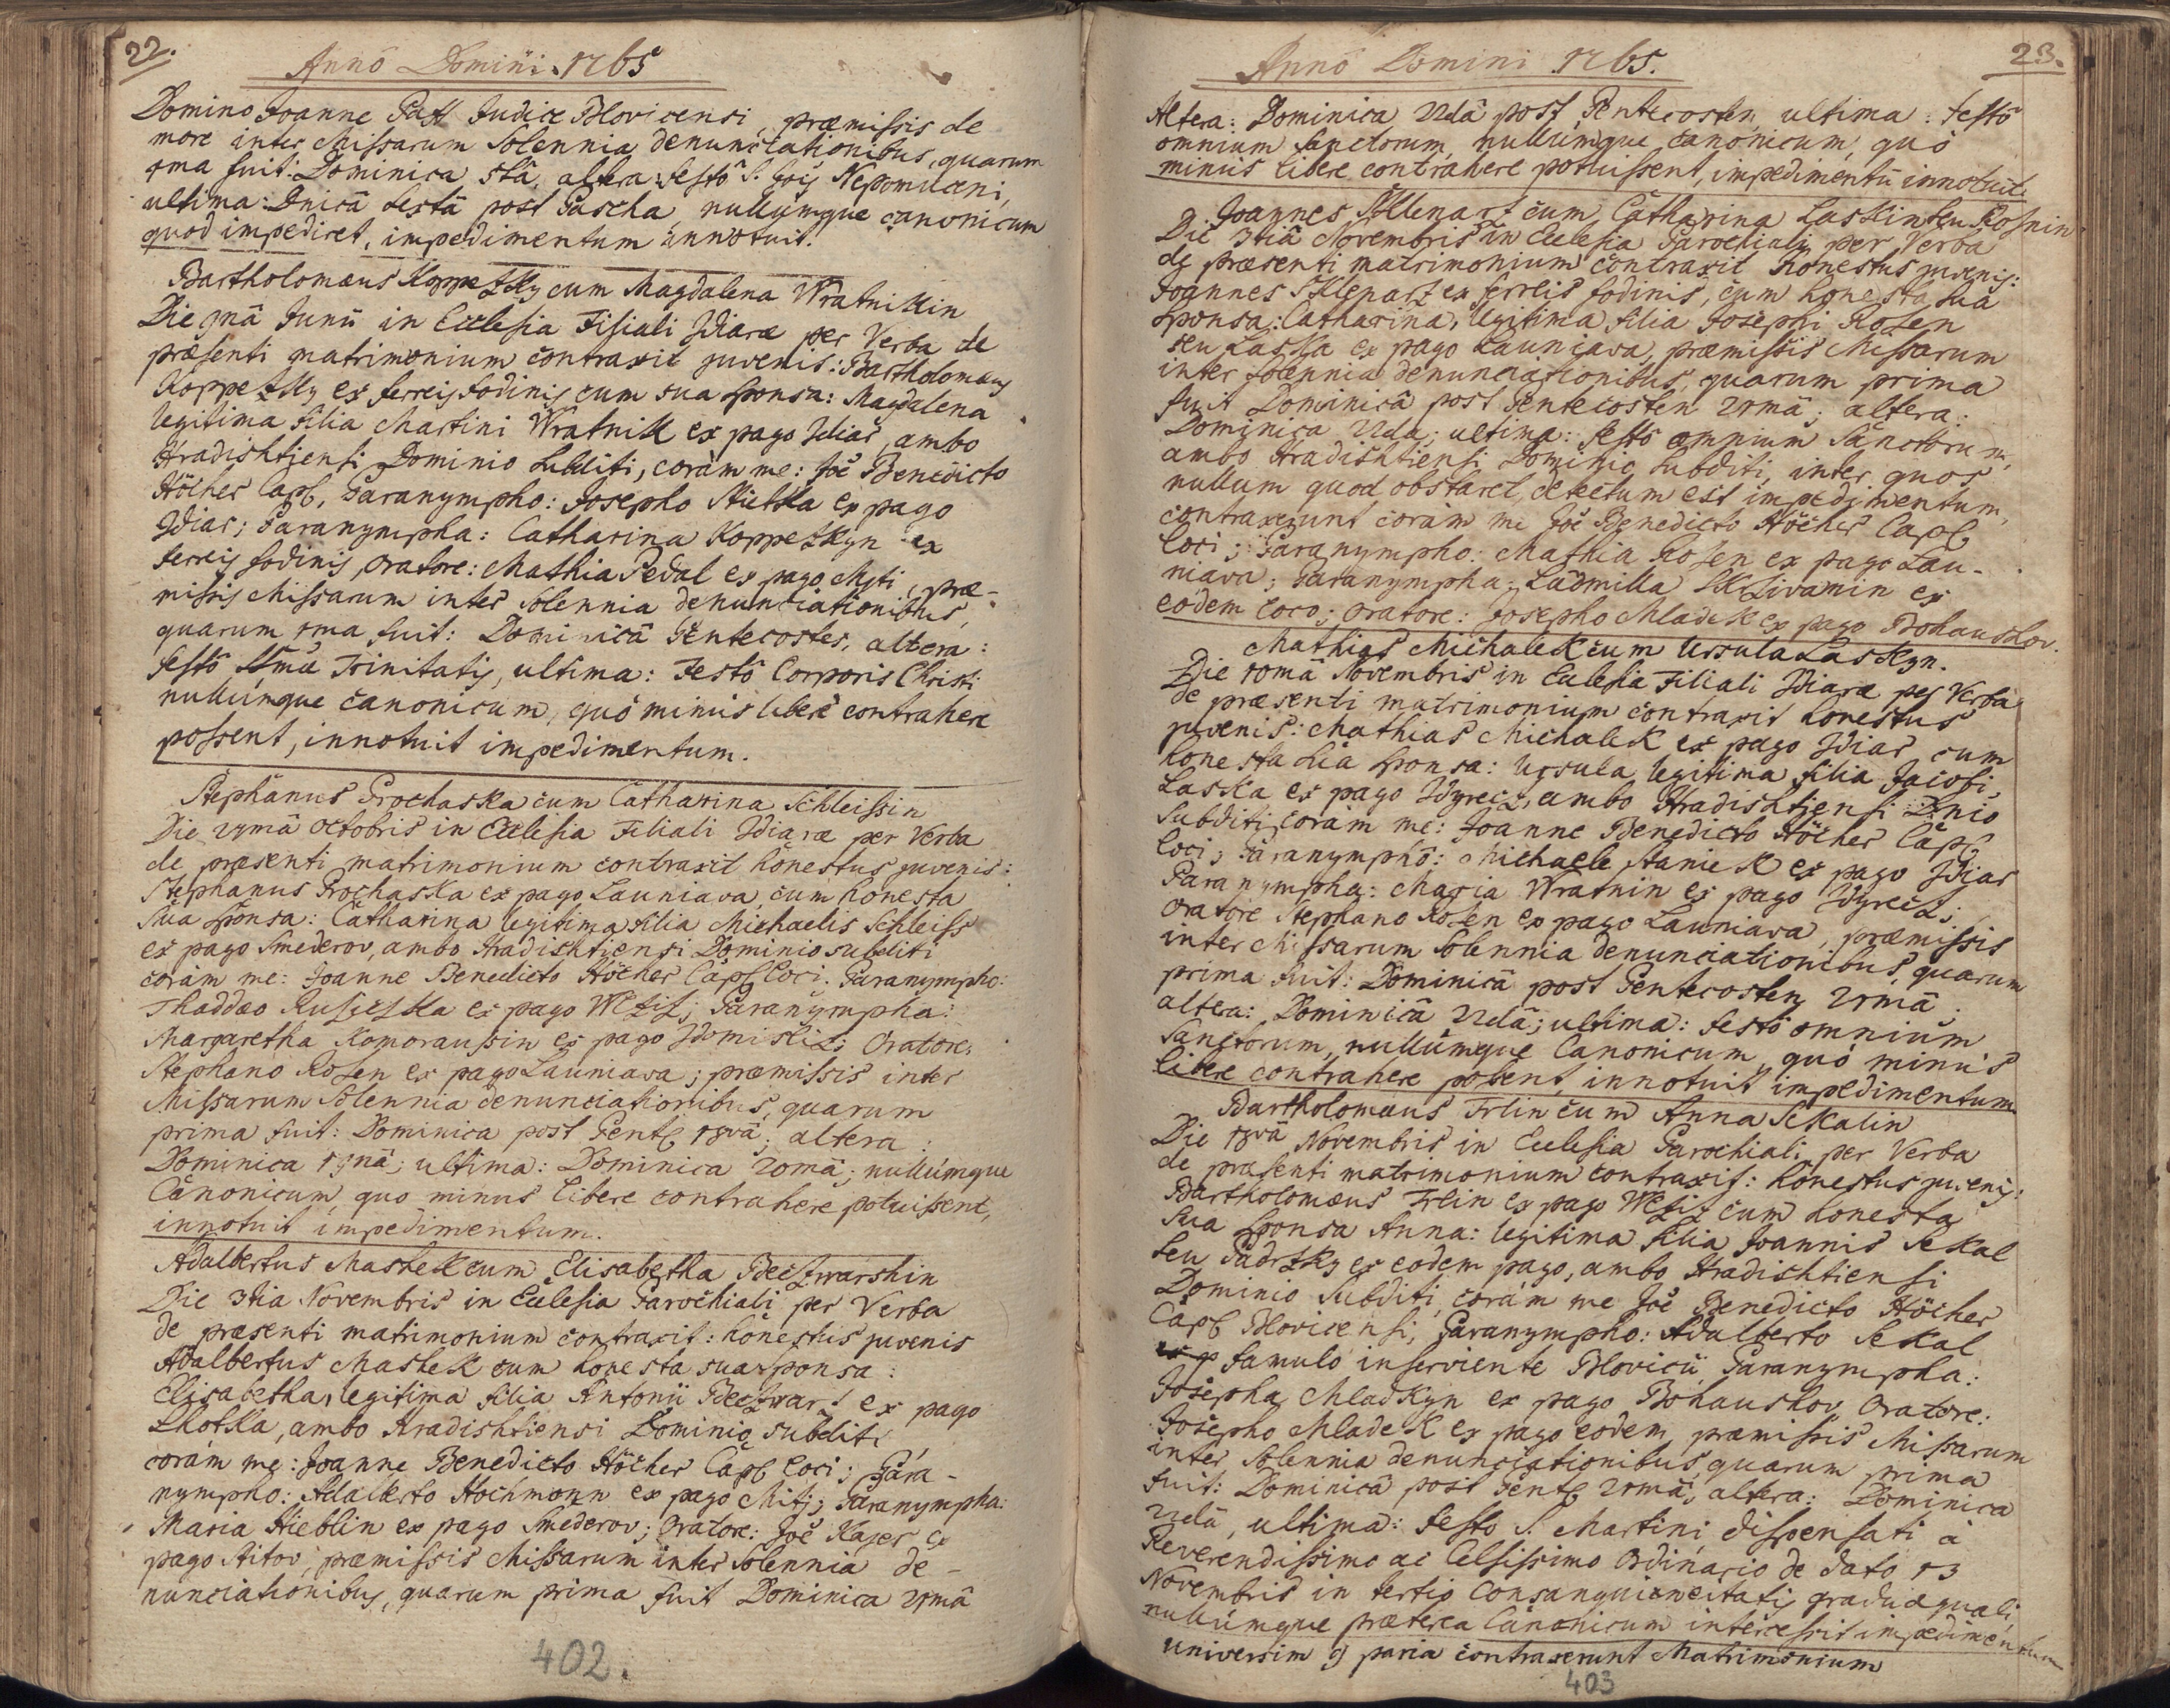 22.
Anno Domini. 1765
Domino Joanne Gass Judice Blovicensi, præmissis de
more inter Missarum Solennia denunciationibus, quarum
1ma fuit: Dominica 5tâ, altera: festô S. Jois Nepomuceni,
ultima: Dnicâ sextâ post Pascha, nullumque canonicum
quod impediret, impedimentum innotuit.
Bartholomæus Koppetzky cum Magdalena Wratnikin
Die 9nâ Junii in Ecclesia Filiali Zdiaræ per Verba de
præsenti matrimonium contraxit juvenis: Bartholomæus
Koppetzky ex ferreis fodinis cum sua Sponsa: Magdalena
legitima filia Martini Wratnik ex pago Zdiar, ambo
Hradishtiensi Dominio Subditi, coràm me: Joê Benedicto
Höcher Capl, Paranympho: Josepho Nietka ex pago
Zdiar; Paranympha: Catharina Koppetzkyn ex
ferreis fodinis, oratore: Mathia Pedal ex pago Myti, præ-
missis Missarum inter Solennia denunciationibus,
quarum 1ma fuit: Dominicâ Pentecostes, altera:
festô Ssmæ Trinitatis, ultima: Festô Corporis Christi
nullúmque canonicum, quò minùs liberè contrahere
possent, innotuit impedimentum.
Stephanus Prochaska cum Catharina Schleissin
Die 27mâ octobris in Ecclesia Filiali Zdiaræ per Verba
de præsenti matrimonium contraxit honestus juvenis:
Stephanus Prochaska ex pago Launiava, cum honesta
Sua Sponsa: Catharina legitima filia Michaelis Schleiss
ex pago Smederov, ambo Hradishtiensi Dominio subditi
coràm me: Joanne Benedicto Höcher Capl loci. Paranympho:
Thaddæo ex pago Wetzis; Paranympha:
Margaretha Komoraussin ex pago Zdomislitz; Oratore,
Stephano Rosen ex pago Launiava; præmissis inter
Missarum Solennia denunciationibus, quarum
prima fuit: Dominica post Pentl 18vâ; altera:
Dominica 19nâ; ultima: Dominica 20mâ; nullúmque
Canonicum, quo minus libere contrahere potuissent,
innotuit impedimentum.
Adalbertus Mashek cum Elisabetha Beczwarshin
Die 3tia Novembris in Ecclesia Parochiali per Verba
de præsenti matrimonium contraxit: honestus juvenis
Adalbertus Mashek cum honesta sua Sponsa:
Elisabetha, legitima filia Antonii Beczwarz ex pago
Lhotka, ambo Hradishtiensi Dominio subditi
coràm me: Joanne Benedicto Höcher Capl loci; Para-
nympho: Adalberto Hochmann ex pago Miti; Paranympha:
Maria Hieblin ex pago Smederov; Oratore: Joê Kajer ex
pago Sitov, præmissis Missarum inter Solennia de-
nunciationibus, quarum prima fuit Dominica 21mâ
402.
23.
Anno Domini 1765.
Altera: Dominica 22dâ post Pentecosten, ultima: festô
omnium Sanctorum, nullúmque canonicum, quò
minùs libere contrahere potuissent, impedimentū innotuit.
Joannes Sklenarz cum Catharina Laskin seu Rosnin
Die 3tiâ Novembris in Ecclesia Parochiali, per Verba
de præsenti matrimonium contraxit honestus juvenis:
Joannes Sklenarz ex ferreis fodinis, cum honesta sua
Sponsa: Catharina, legitima filia Josephi Rosen
seu Laska ex pago Launiava, præmissis Missarum
inter solennia denunciationibus, quarum prima
fuit Dominicâ post Pentecosten 21mâ; altera:
Dominica 22da; ultima: festô omnium Sanctorum,
ambo Hradishtiensi Dominio subditi, inter quos
nullum quod obstaret, detectum est impedimentum,
contraxerunt coràm me Joê Benedicto Höcher Capl
loci; Paranympho: Mathia Rosen ex pago Lau-
niava; Paranympha: Ludmilla Sklivamin ex
eodem loco; oratore: Josepho Mladek ex pago Bohaushov.
Mathias Michalek cum Ursula Laskyn.
Die 10mâ Novembris in Ecclesia Filiali Zdiaræ per Verba
de præsenti matrimonium contraxit honestus
juvenis: Mathias Michalek ex pago Zdiar cum
honesta sua Sponsa: Ursula, legitima filia Jacobi
Laska ex pago Zdyrecz, ambo Hradishtiensi Dnio
Subditi coràm me: Joanne Benedicto Höcher Capl
loci; Paranympho: Michaele Staniek ex pago Zdiar
Paranympha: Maria Wratnin ex pago Zdyrecz;
oratore Stephano Rosen ex pago Launiava, præmissis
inter Missarum Solennia denunciationibus, quarum
prima fuit: Dominicâ post Pentecosten 21mâ;
altera: Dominicâ 22dâ; ultima: festô omnium
Sanctorum, nullúmque Canonicum, quò minùs
libere contrahere possent, innotuit impedimentum
Bartholomæus Frlin cum Anna Sekalin
Die 18vâ Novembris in Ecclesia Parochiali per Verba
de præsenti matrimonium contraxit: honestus juvenis:
Bartholomæus Frlin ex pago Wetziz cum honesta
sua Sponsa Anna: legitima filia Joannis Sekal
seu Padrtzky ex eodem pago, ambo Hradishtiensi
Dominio Subditi, coràm me Joê Benedicto Höcher
Capl Blovicensi, Paranympho: Adalberto Sekal
famulo inserviente Blovicii, Paranympha:
Josepha Mladkyn ex pago Bohaushov, Oratore:
Josepho Mladek ex pago eodem, præmissis Missarum
inter Solennia denunciationibus, quarum prima
fuit: Dominicâ post Pentl 21mâ; altera: Dominica
22dâ, ultima: festo S. Martini, dispensati à
Reverendissimo ac Celsissimo Ordinario de dato 13
Novembris in tertio Consanguineitatis gradu æquali
nullúmque præterea Canonicum intercessit impedimentum
universim 9 paria contraxerunt Matrimonium
403